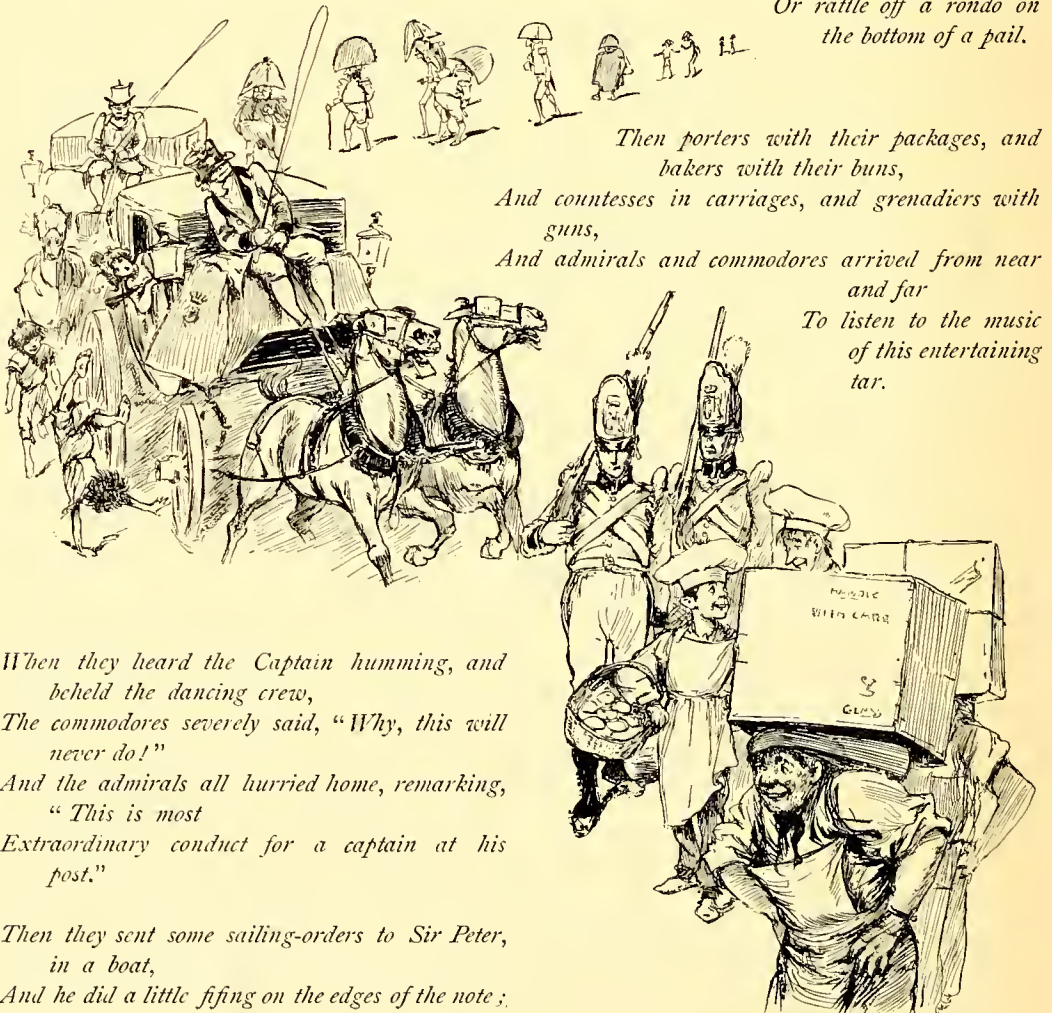 Or rattle off a rondo on
the bottom of a pail.
Then porters with their packages, and
bakers with their buns,
And countesses in carriages, and grenadiers with
guns,
And admirals and commodores arrived from near
and far
To listen to the music
of this entertaining
tar.
WITH CARE
When they heard the Captain humming, and
beheld the dancing crew,
The commodores severely said, “Why, this will
never do!”
And the admirals all hurried home, remarking,
“ This is most
Extraordinary conduct for a captain at his
post.”
Then they sent some sailing-orders to Sir Peter,
in a boat,
And he did a little fifing on the edges of the note;